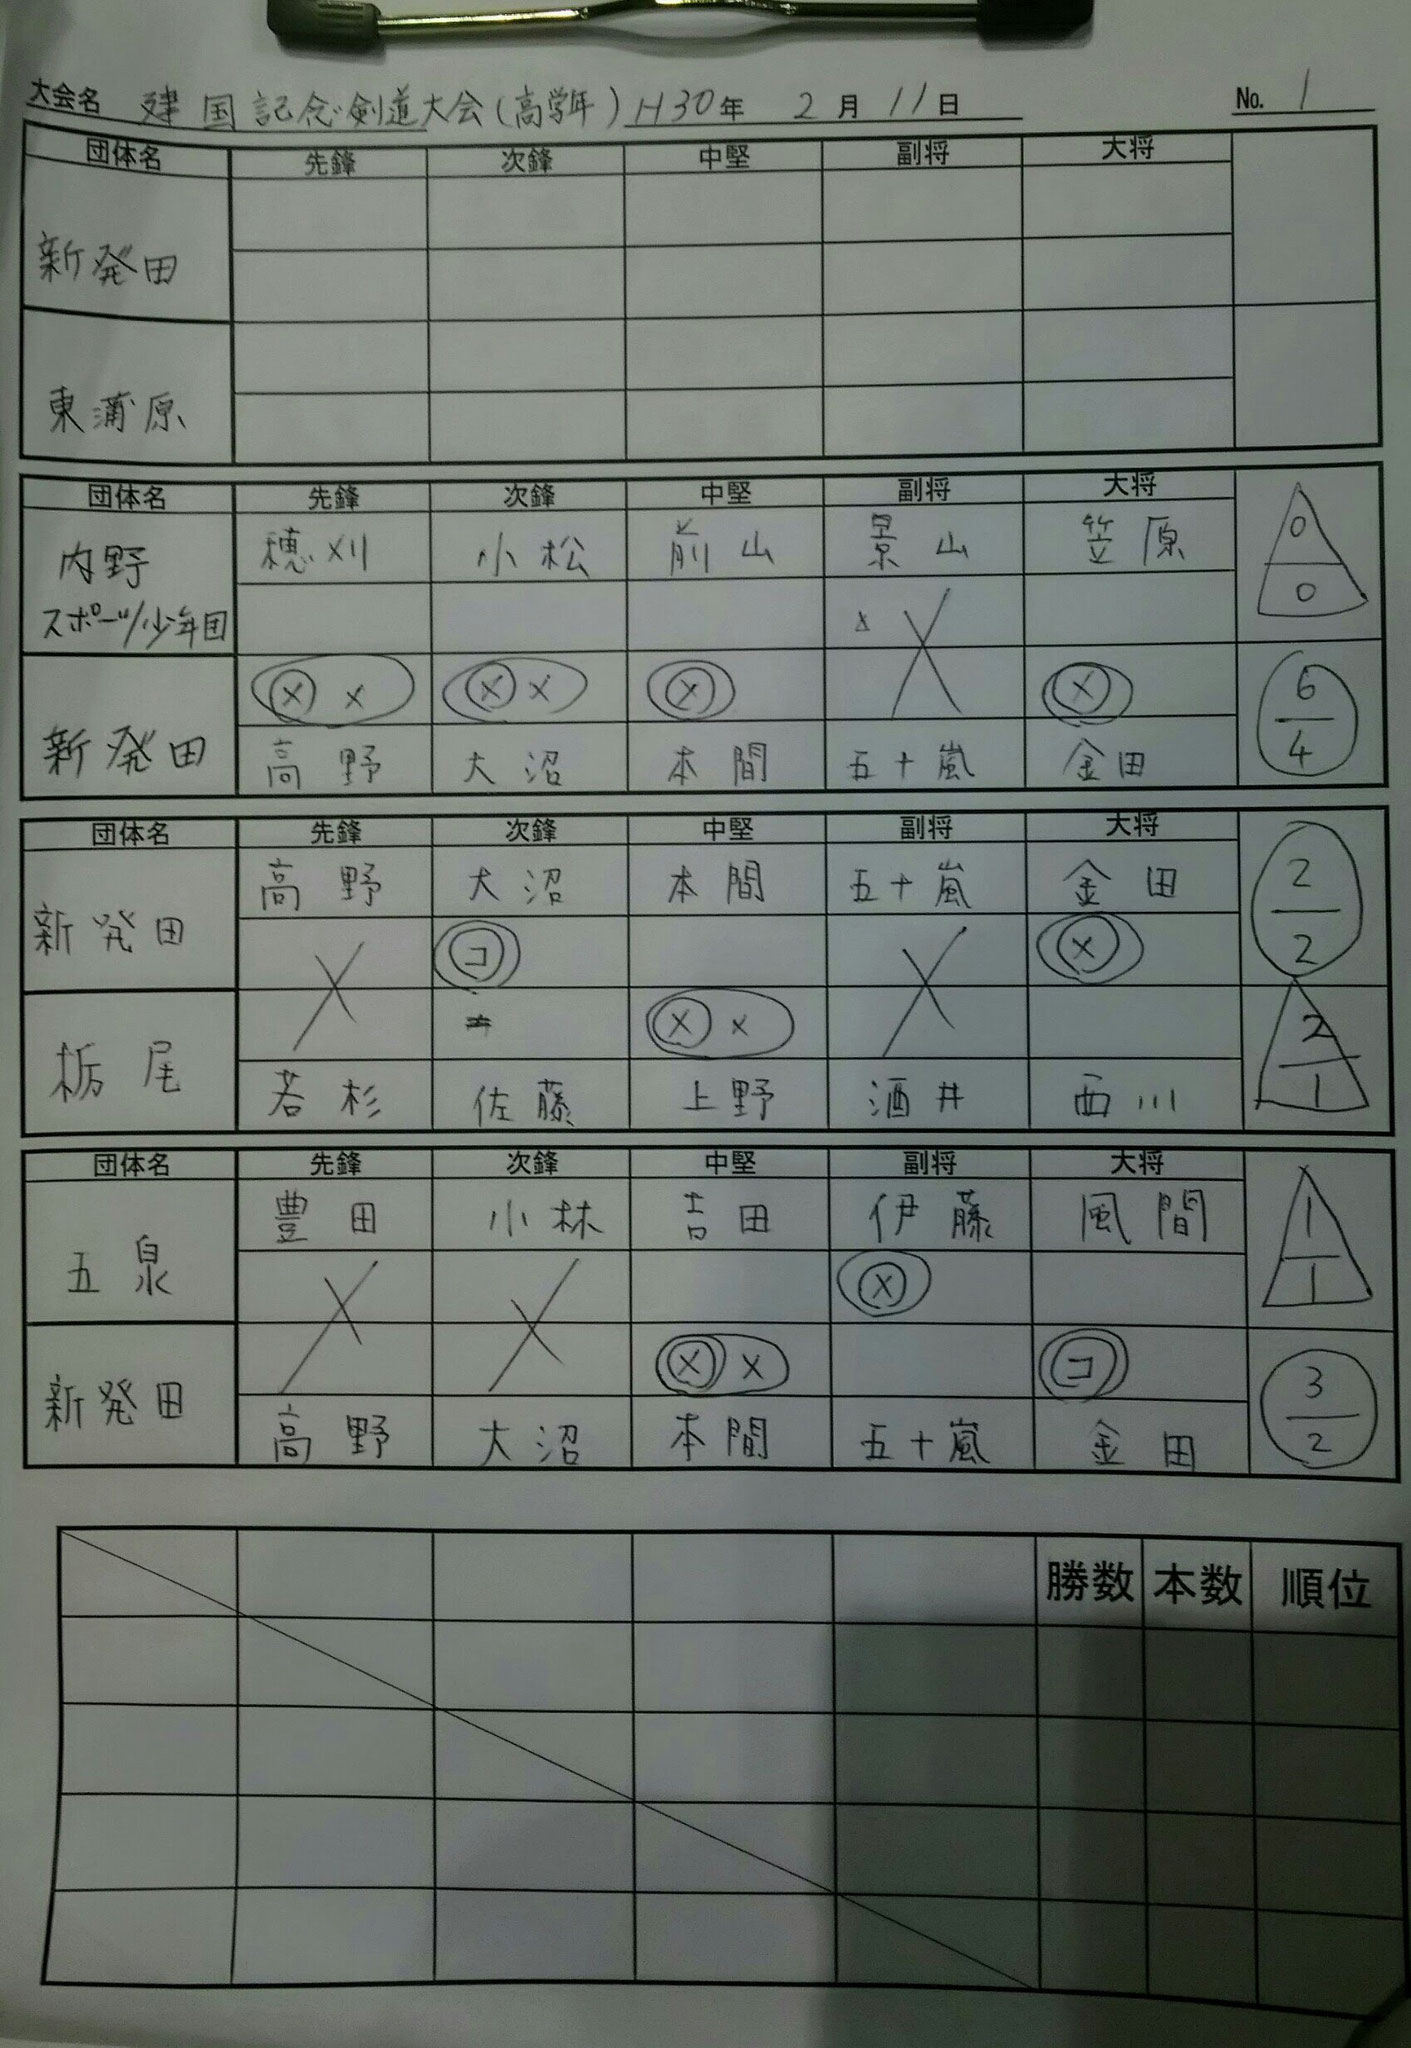 大会名 建国記念剣道大会(高学年) H30年 2月11日 No. 1
団体名 先鋒 次鋒 中堅 副将 大将
新発田
東蒲原
団体名 先鋒 次鋒 中堅 副将 大将
内野 穂刈 小松 前山 景山 笠原 0
スポーツ少年団 0
メ メ メ メ メ メ 6
新発田 高野 大沼 本間 五十嵐 金田 4
団体名 先鋒 次鋒 中堅 副将 大将
高野 大沼 本間 五十嵐 金田 2
新発田 コ メ 2
メ メ 2
栃尾 若杉 佐藤 上野 酒井 西川 1
団体名 先鋒 次鋒 中堅 副将 大将
豊田 小林 吉田 伊藤 風間 1
五泉 メ 1
メ メ コ 3
新発田 高野 大沼 本間 五十嵐 金田 2
勝数 本数 順位